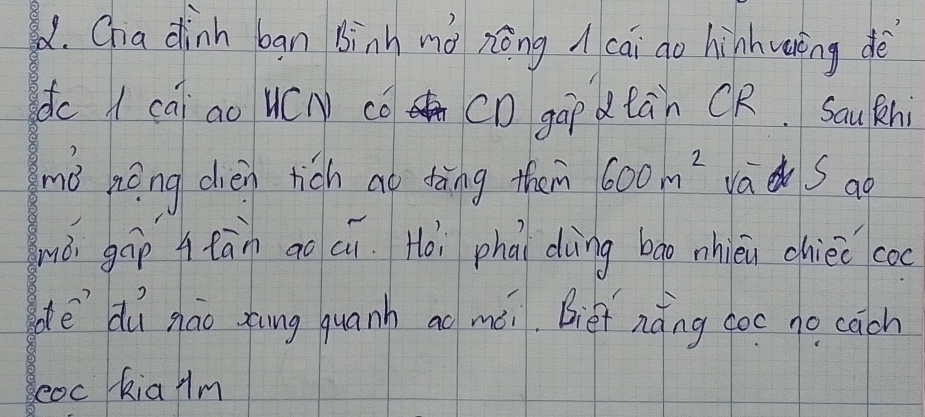 2. Gia đình bạn Bình mở rộng 1 cái ao hình vuông để
đc 1 cái ao HCN có CD gấp 2 lần CR. Sau khi
mở rộng diện tích ao tăng thêm 600m² và S ao
mới gấp 4 lần ao cũ. Hỏi phải dùng bao nhiêu chiếc cọc
để đủ rào xung quanh ao mới. Biết rằng cọc nọ cách
cọc kia 1m